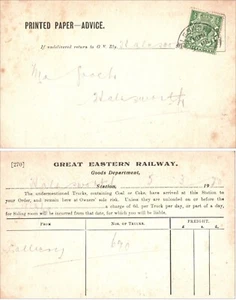 PRINTED PAPER—ADVICE.
If undelivered return to G. E. Rly. Halesworth
Mr
Halesworth
[270] GREAT EASTERN RAILWAY.
Goods Department,
Halesworth Station, 19
The undermentioned Trucks, containing Coal or Coke, have arrived at this Station to
your Order, and remain here at Owners' sole risk. Unless they are unloaded on or before the
charge of 6d. per Truck per day, or part of a day,
for Siding room will be incurred from that date, for which you will be liable.
From Nos. of Trucks. FREIGHT.